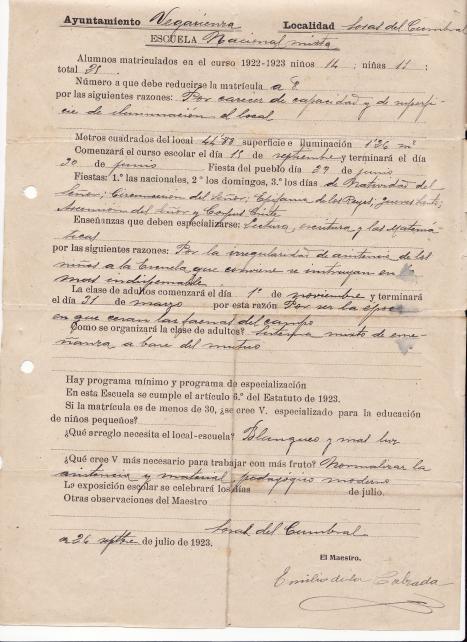 Ayuntamiento Vegarienza Localidad Sosas del Cumbral
ESCUELA Nacional mixta
Alumnos matriculados en el curso 1922-1923 niños 14; niñas 11;
total 25.
Número a que debe reducirse la matrícula a 8
por las siguientes razones: Por carecer de capacidad y de superfi-
cie de iluminacion el local
Metros cuadrados del local 44'80 superficie e iluminación 1'26 m²
Comenzará el curso escolar el día 1º de septiembre y terminará el día
20 de junio Fiesta del pueblo día 29 de junio
Fiestas: 1.º las nacionales, 2.º los domingos, 3.º los días de Natividad del
Señor; Circuncision del Señor; Epifania de los Reyes; Jueves Santo;
Ascension del Señor y Corpus Criste
Enseñanzas que deben especializarse: Lectura, escritura y las Matema-
ticas
por las siguientes razones: Por la irregularidad de asistencia de los
niños a la Escuela que conviene se instruyan en lo
mas indispensable
La clase de adultos comenzará el día 1º de noviembre y terminará
el día 31 de marzo por esta razón Por ser la época
en que cesan las faenas del campo
Como se organizará la clase de adultos? Sistema mixto de ense-
ñanza a base del mutuo
Hay programa mínimo y programa de especialización
En esta Escuela se cumple el artículo 6.º del Estatuto de 1923.
Si la matrícula es de menos de 30, ¿se cree V. especializado para la educación
de niños pequeños?
¿Qué arreglo necesita el local-escuela? Blanqueo y mas luz
¿Qué cree V. más necesario para trabajar con más fruto? Normalizar la
asistencia y material pedagógico moderno
Lo exposición escolar se celebrará los días de julio.
Otras observaciones del Maestro
Sosas del Cumbral
a 26 septbre de julio de 1923.
El Maestro,
Emilio de la Calzada